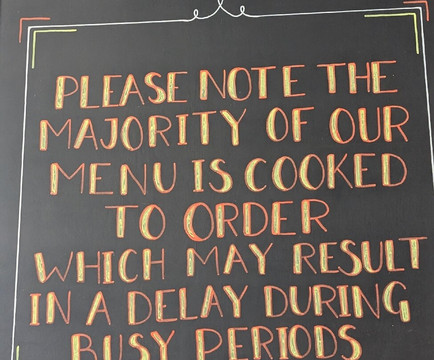 PLEASE NOTE THE
MAJORITY OF OUR
MENU IS COOKED
TO ORDER
WHICH MAY RESULT
IN A DELAY DURING
BUSY PERIODS